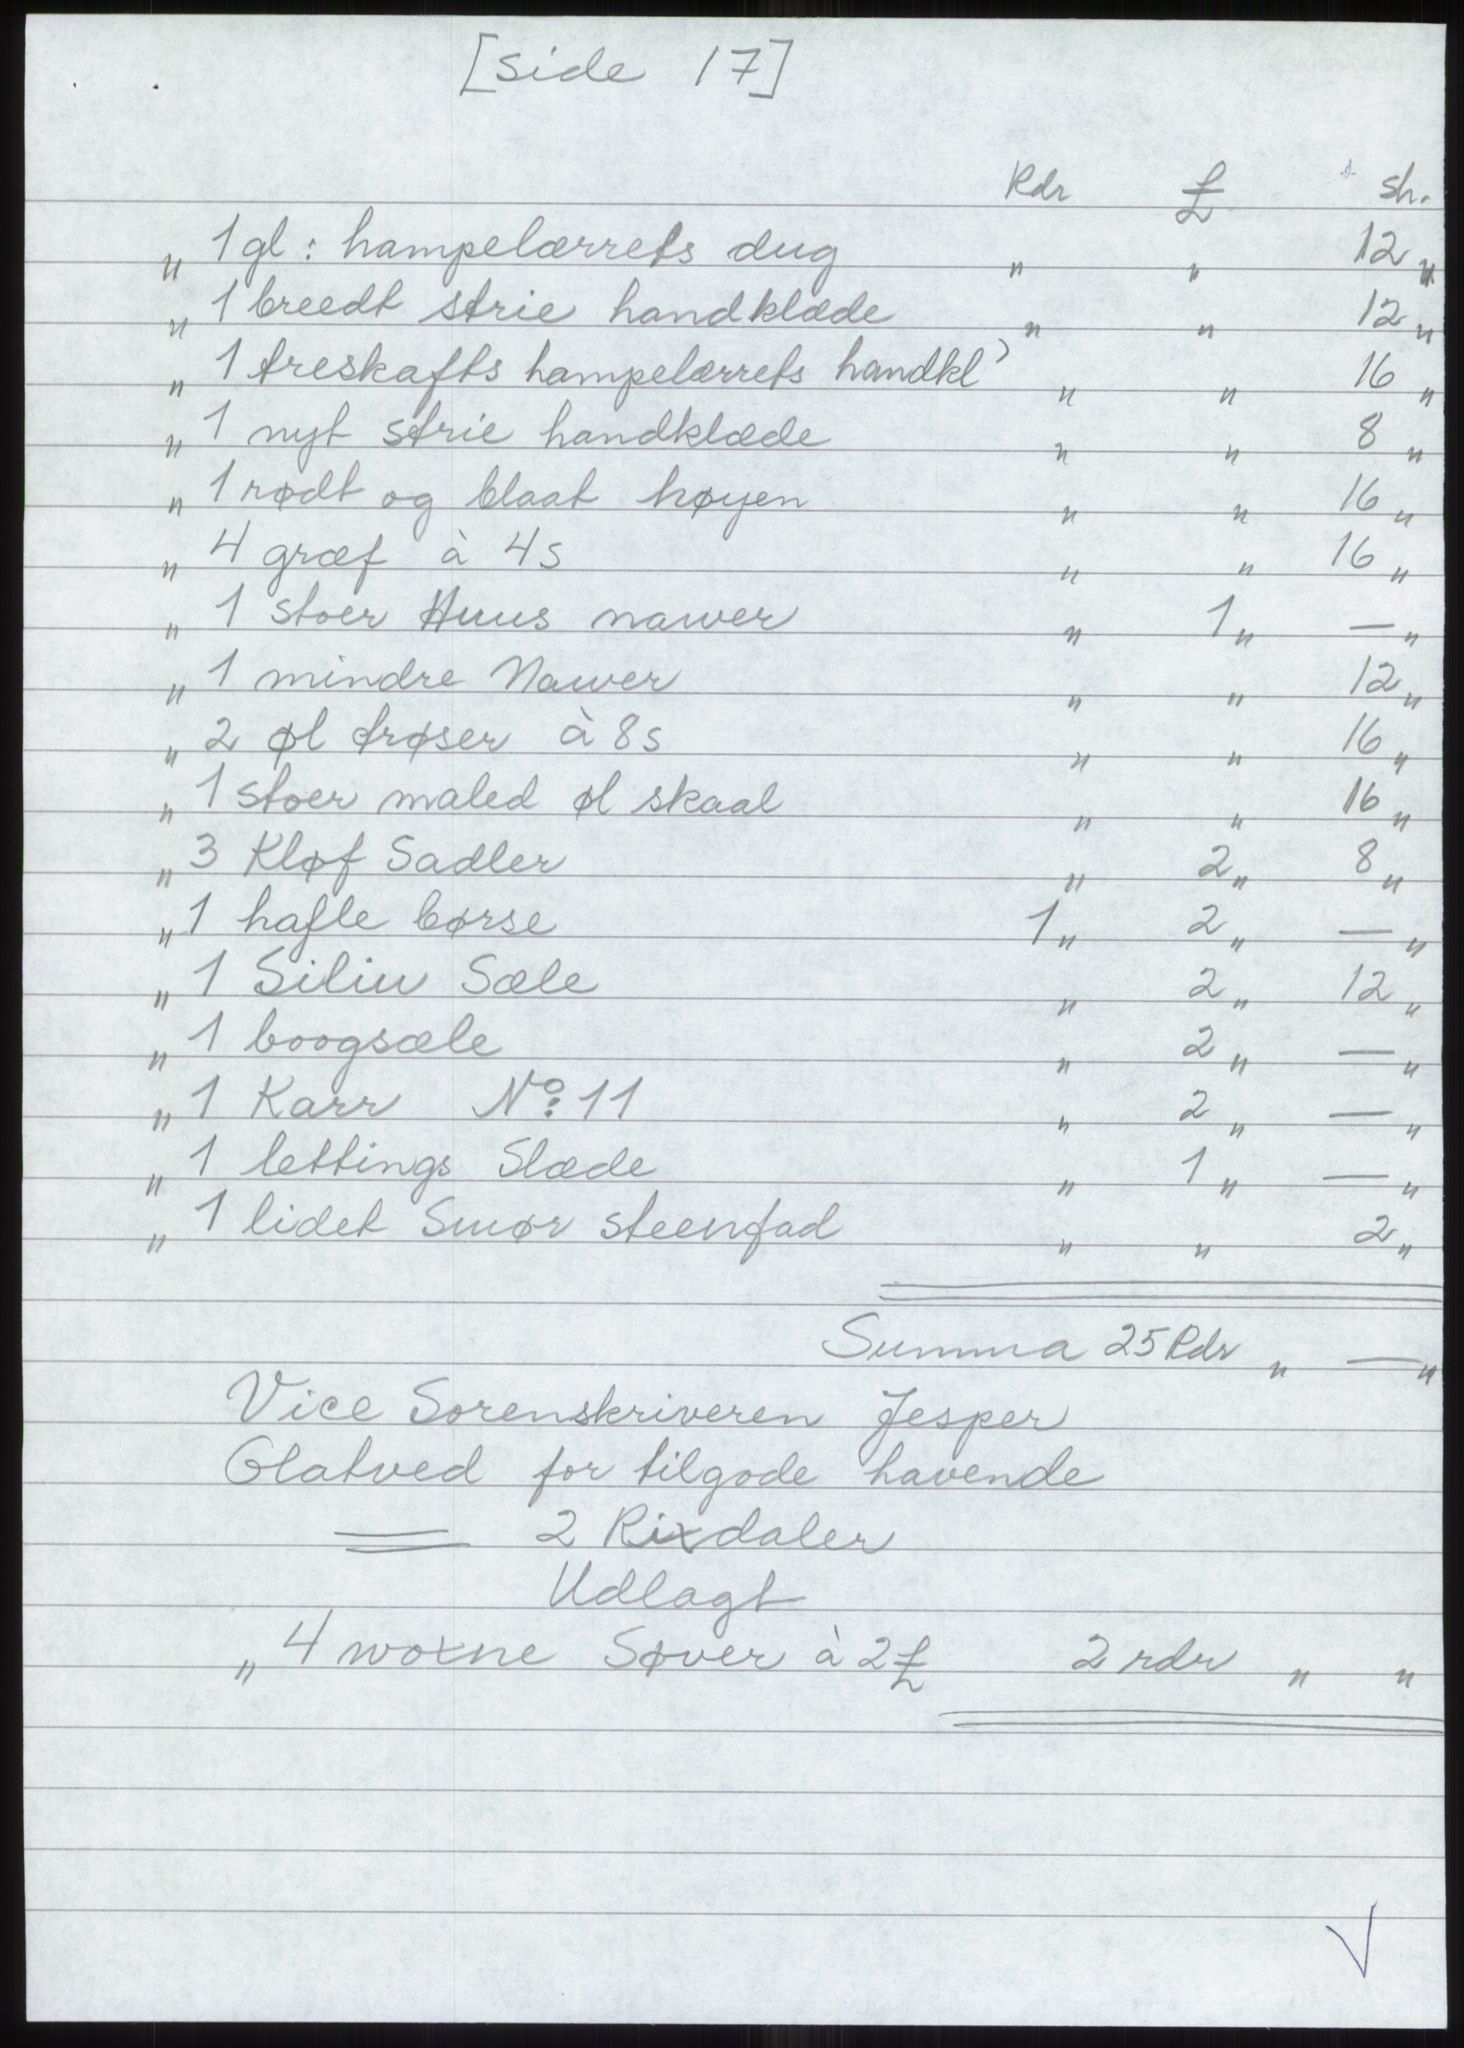 [side 17]
Rdr £ sh.
„ 1 gl: hampelærrets dug „ „ 12 „
„ 1 breedt strie handklæde „ „ 12 „
„ 1 treskafts hampelærrets handkl' „ „ 16 „
„ 1 nyt strie handklæde „ „ 8 „
„ 1 rødt og blaat høyen „ „ 16 „
„ 4 græf à 4 s „ „ 16 „
„ 1 stoer Huus nawer „ 1 „ — „
„ 1 mindre Nawer „ „ 12 „
„ 2 øl trøser à 8 s „ „ 16 „
„ 1 stoer maled øl skaal „ „ 16 „
„ 3 Kløf Sadler „ 2 „ 8 „
„ 1 hafle børse 1 „ 2 „ — „
„ 1 Siliu Sæle „ 2 „ 12 „
„ 1 boogsæle „ 2 „ — „
„ 1 Karr No: 11 „ 2 „ — „
„ 1 lettings Slæde „ 1 „ — „
„ 1 lidet Smør steenfad „ „ 2 „
Summa 25 Rdr „ — „
Vice Sorenskriveren Jesper
Glatved for tilgode havende
2 Rixdaler
Udlagt
„ 4 woxne Søver à 2 £ 2 rdr „ „